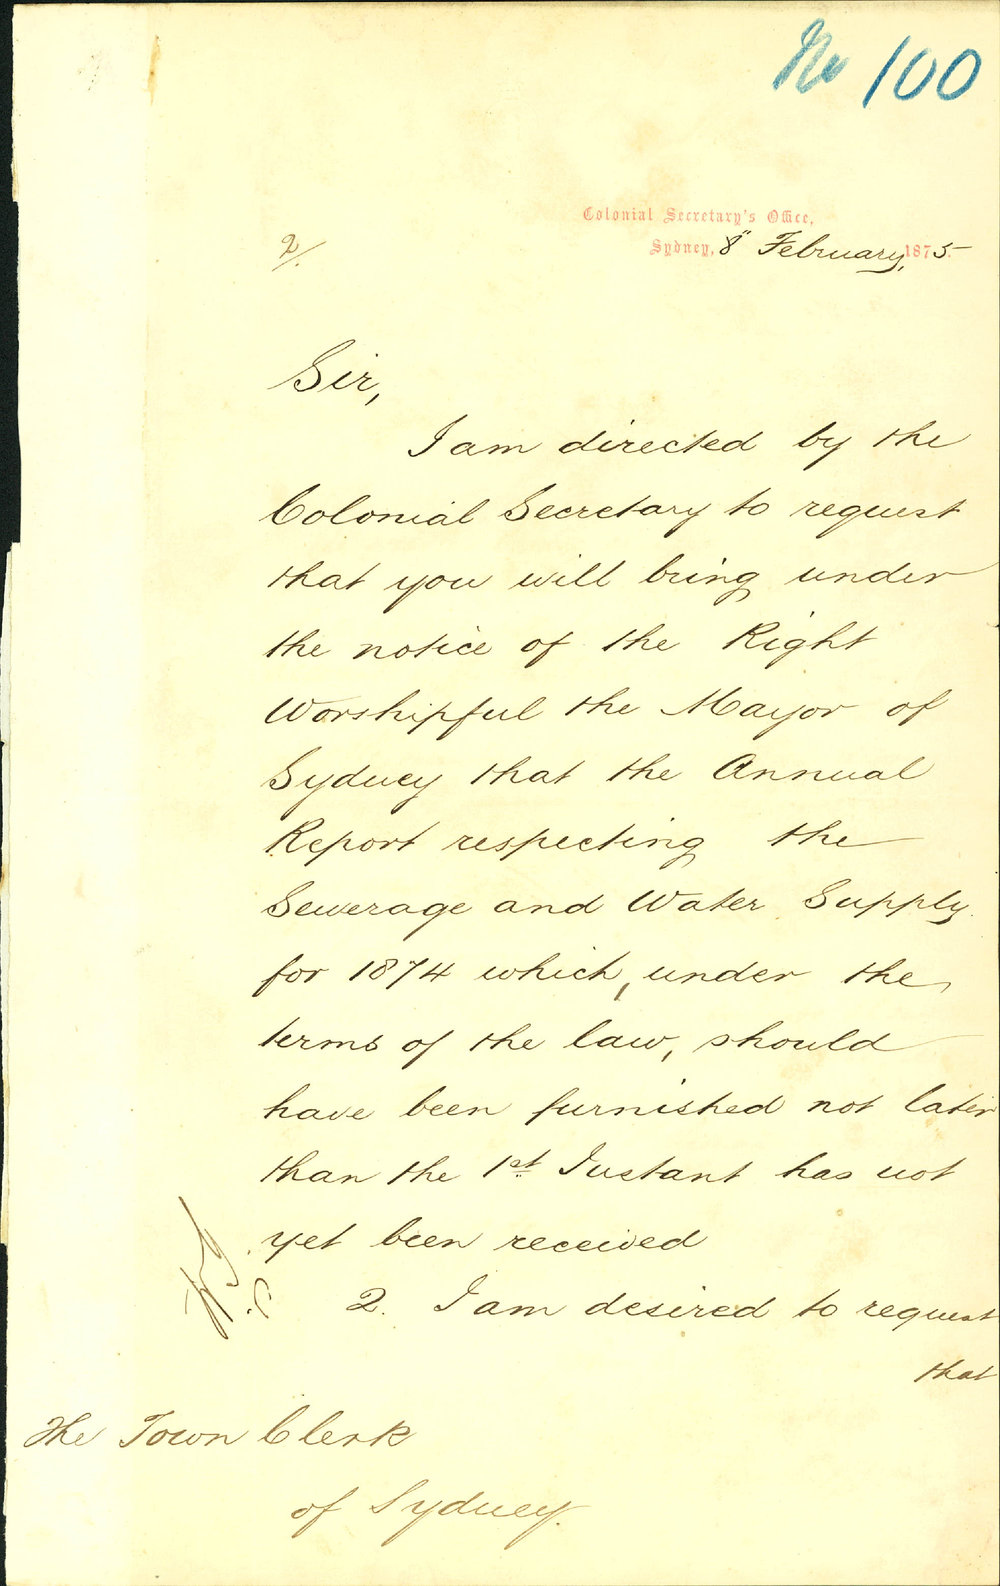 No 100
Colonial Secretary's Office,
2/. Sydney, 8" February, 1875
Sir,
I am directed by the
Colonial Secretary to request
that you will bring under
the notice of the Right
Worshipful the Mayor of
Sydney that the Annual
Report respecting the
Sewerage and Water Supply
for 1874 which, under the
terms of the law, should
have been furnished not later
than the 1st Instant has not
yet been received
2. I am desired to request
that
The Town Clerk
of Sydney.